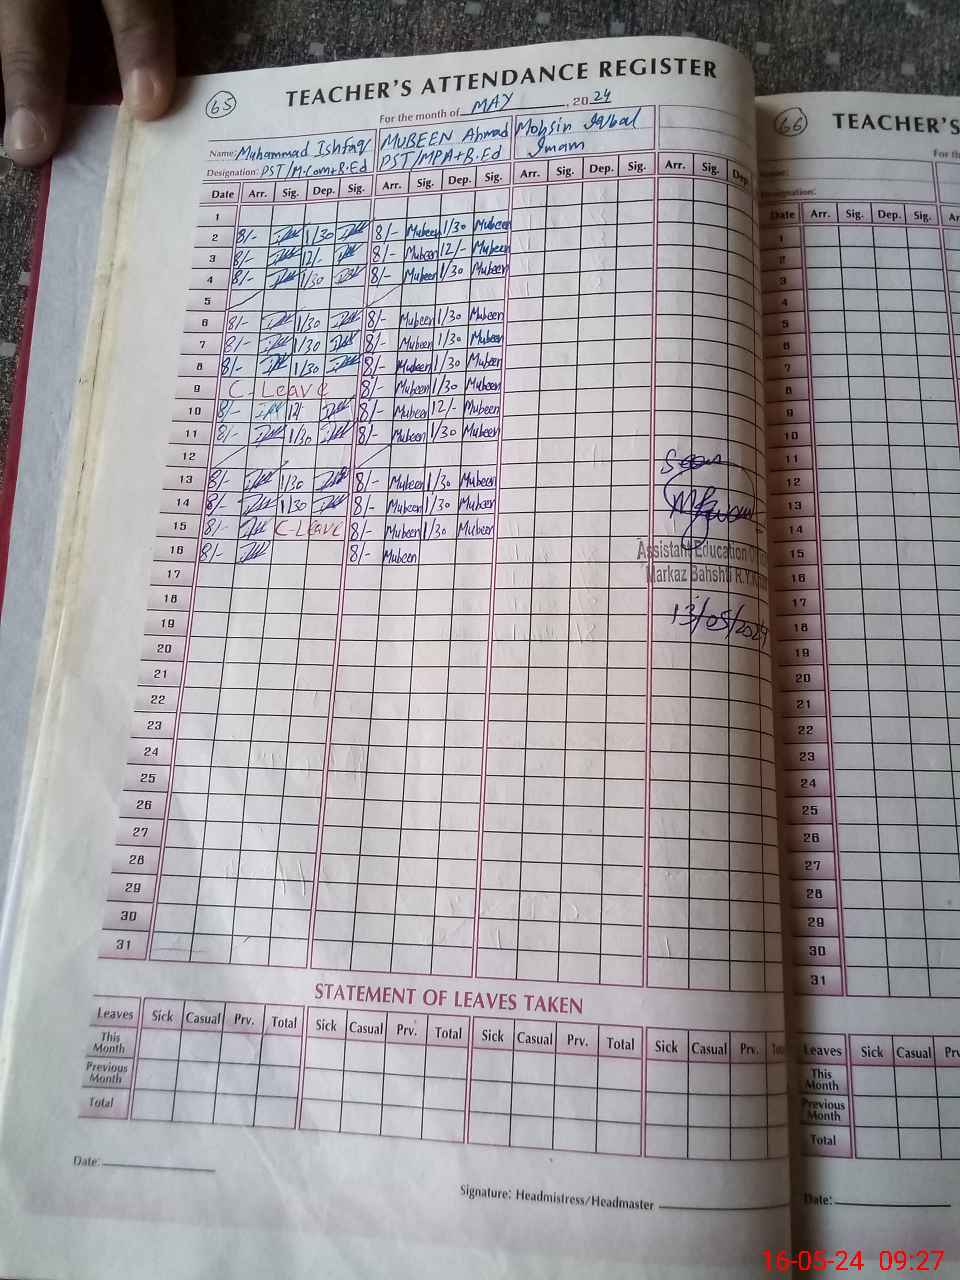 65
TEACHER'S ATTENDANCE REGISTER
For the month of MAY, 2024
Name: Muhammad Ishfaq MUBEEN Ahmad Mohsin Iqbal
Designation: PST/M.Com+B.Ed PST/MPA+B.Ed Imam
Date Arr. Sig. Dep. Sig. Arr. Sig. Dep. Sig. Arr. Sig. Dep. Sig. Arr. Sig. Dep.
1
2 8/- 1/30 8/- Mubeen 1/30 Mubeen
3 8/- 12/- 8/- Mubeen 12/- Mubeen
4 8/- 1/30 8/- Mubeen 1/30 Mubeen
5
6 8/- 1/30 8/- Mubeen 1/30 Mubeen
7 8/- 1/30 8/- Mubeen 1/30 Mubeen
8 8/- 1/30 8/- Mubeen 1/30 Mubeen
9 C-Leave 8/- Mubeen 1/30 Mubeen
10 8/- 12/- 8/- Mubeen 12/- Mubeen
11 8/- 1/30 8/- Mubeen 1/30 Mubeen
12
13 8/- 1/30 8/- Mubeen 1/30 Mubeen
14 8/- 1/30 8/- Mubeen 1/30 Mubeen
15 8/- C-Leave 8/- Mubeen 1/30 Mubeen
16 8/- 8/- Mubeen
17
18
19
20
21
22
23
24
25
26
27
28
29
30
31
Seen
Assistant Education
Markaz Bahshti R.Y.
13/05/2024
STATEMENT OF LEAVES TAKEN
Leaves Sick Casual Prv. Total Sick Casual Prv. Total Sick Casual Prv. Total Sick Casual Prv.
This Month
Previous Month
Total
Date:
Signature: Headmistress/Headmaster
66
TEACHER'S
Date Arr. Sig. Dep. Sig. Arr.
1
2
3
4
5
6
7
8
9
10
11
12
13
14
15
16
17
18
19
20
21
22
23
24
25
26
27
28
29
30
31
Leaves Sick Casual
This Month
Previous Month
Total
Date:
16-05-24 09:27